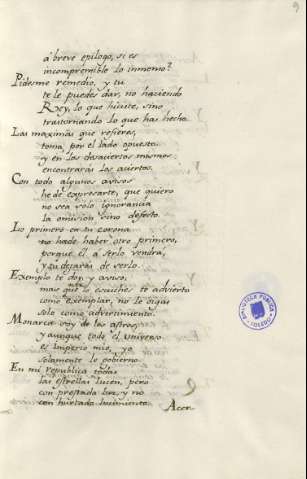 9
á breve epílogo, si es
incomprensible lo inmenso?
Pidesme remedio, y tu
te le puedes dar, no haciendo
Rey, lo que hiciste, sino
trastornando lo que has hecho
Las maximas que refieres,
toma, por el lado opuesto
y en los desaciertos mismos
encontraras los aciertos.
Con todo algunos avisos
he de expresarte, que quiero
no sea solo ignorancia
la omision sino defecto.
Lo primero en tu corona
no hade haber otro primero,
porque el á serlo vendrá,
y tu dejarás de serlo.
Exemplo te doy, y aviso,
mas que lo escuches te advierto
como exemplar, no le oigas
solo como advertimiento.
Monarca soy de los astros,
y aunque todo el universo
es Imperio mio, yo
solamente lo gobierno.
En mi republica todas
las estrellas lucen, pero
con prestada luz, y no
con hurtado lucimiento.
Acon
BIBLIOTECA PUBLICA
TOLEDO